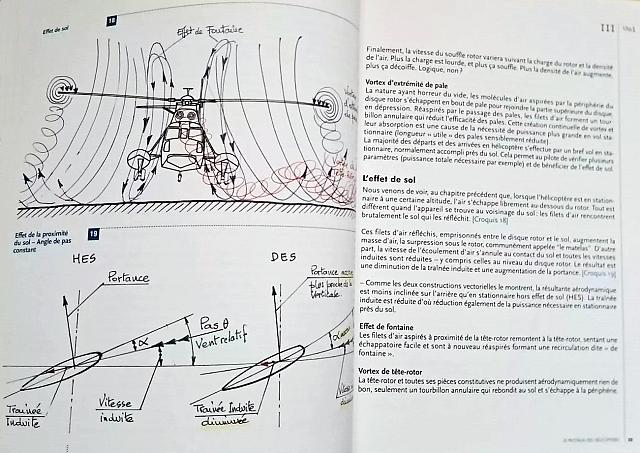 Effet de sol
18
Effet de Fontaine
Effet de la proximité
du sol – Angle de pas
constant
19
HES
Portance
Pas θ
α
Vent relatif
Trainée
induite
Vitesse
induite
DES
Portance
plus proche de la
verticale.
α
Trainée Induite
diminuée
III
Finalement, la vitesse du souffle rotor variera suivant la charge du rotor et la densité
de l'air. Plus la charge est lourde, et plus ça souffle. Plus la densité de l'air augmente,
plus ça décoiffe. Logique, non ?
Vortex d'extrémité de pale
La nature ayant horreur du vide, les molécules d'air aspirées par la périphérie du
disque rotor s'échappent en bout de pale pour rejoindre la partie supérieure du disque,
en dépression. Réaspirés par le passage des pales, les filets d'air forment un tour-
billon annulaire qui réduit l'efficacité des pales. Cette création continuelle de vortex et
leur absorption est une cause de la nécessité de puissance plus grande en vol sta-
tionnaire (longueur « utile » des pales sensiblement réduite).
La majorité des départs et des arrivées en hélicoptère s'effectue par un bref vol en sta-
tionnaire, normalement accompli près du sol. Cela permet au pilote de vérifier plusieurs
paramètres (puissance totale nécessaire par exemple) et de bénéficier de l'effet de sol.
L'effet de sol
Nous venons de voir, au chapitre précédent que, lorsque l'hélicoptère est en station-
naire à une certaine altitude, l'air s'échappe librement au-dessous du rotor. Tout est
différent quand l'appareil se trouve au voisinage du sol : les filets d'air rencontrent
brutalement le sol qui les réfléchit. [Croquis 18]
Ces filets d'air réfléchis, emprisonnés entre le disque rotor et le sol, augmentent la
masse d'air, la surpression sous le rotor, communément appelée "le matelas". D'autre
part, la vitesse de l'écoulement d'air s'annule au contact du sol et toutes les vitesses
induites sont réduites – y compris celles au niveau du disque rotor. Le résultat est
une diminution de la traînée induite et une augmentation de la portance. [Croquis 19]
– Comme les deux constructions vectorielles le montrent, la résultante aérodynamique
est moins inclinée sur l'arrière qu'en stationnaire hors effet de sol (HES). La traînée
induite est réduite d'où réduction également de la puissance nécessaire en stationnaire
près du sol.
Effet de fontaine
Les filets d'air aspirés à proximité de la tête rotor remontent à la tête rotor, sentant une
échappatoire facile et sont à nouveau réaspirés formant une recirculation dite « de
fontaine ».
Vortex de tête-rotor
La tête-rotor et toutes ses pièces constitutives ne produisent aérodynamiquement rien de
bon, seulement un tourbillon annulaire qui rebondit au sol et s'échappe à la périphérie.